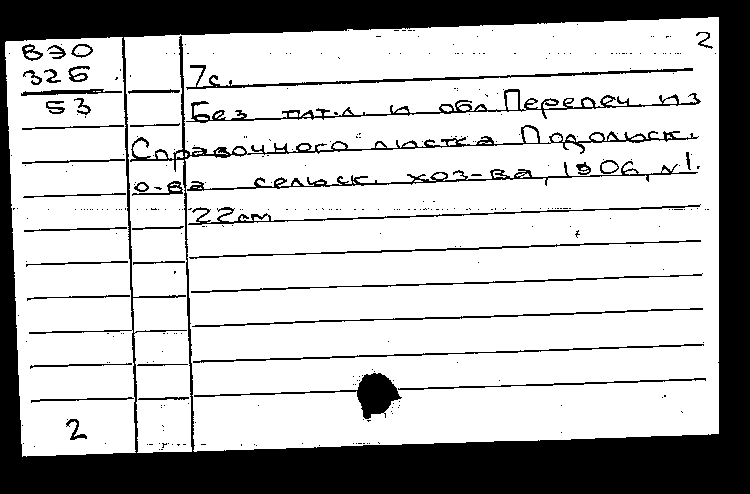 2
ВЭО
326
53
7с.
Без тит.л. и обл Перепеч из
Справочного листка Подольск.
о-ва сельск. хоз-ва, 1906, №1.
22см
2